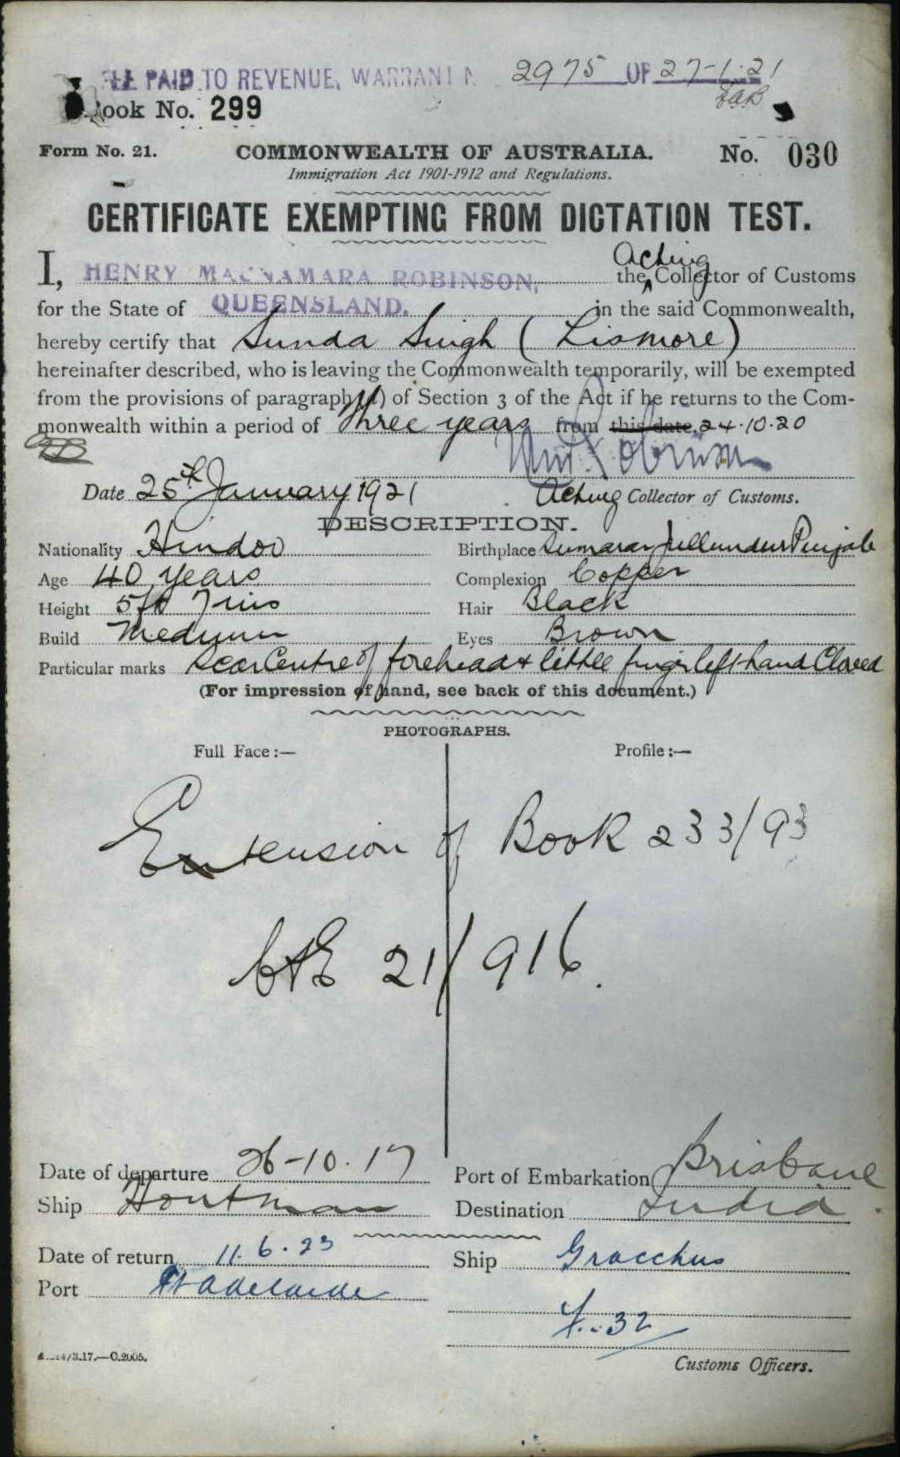 FEE PAID TO REVENUE, WARRANT N 2975 OF 27-1-21
Book No. 299
Form No. 21. COMMONWEALTH OF AUSTRALIA. No. 030
Immigration Act 1901-1912 and Regulations.
CERTIFICATE EXEMPTING FROM DICTATION TEST.
Acting
I, HENRY MACNAMARA ROBINSON, the Collector of Customs
for the State of QUEENSLAND. in the said Commonwealth,
hereby certify that Sunda Singh (Lismore)
hereinafter described, who is leaving the Commonwealth temporarily, will be exempted
from the provisions of paragraph (a) of Section 3 of the Act if he returns to the Com-
monwealth within a period of Three years from this date 24.10.20
Date 25th January 1921 Acting Collector of Customs.
DESCRIPTION.
Nationality Hindoo Birthplace Jullundur Punjab
Age 40 years Complexion Copper
Height 5ft 7ins Hair Black
Build Medium Eyes Brown
Particular marks Scar Centre of forehead & little finger left hand Closed
(For impression of hand, see back of this document.)
PHOTOGRAPHS.
Full Face:— Profile:—
Extension of Book 233/93
21/916.
Date of departure 26-10.17 Port of Embarkation Brisbane
Ship Houtman Destination India.
Date of return 11.6.23 Ship Gracchus
Port Pt Adelaide
32
Customs Officers.